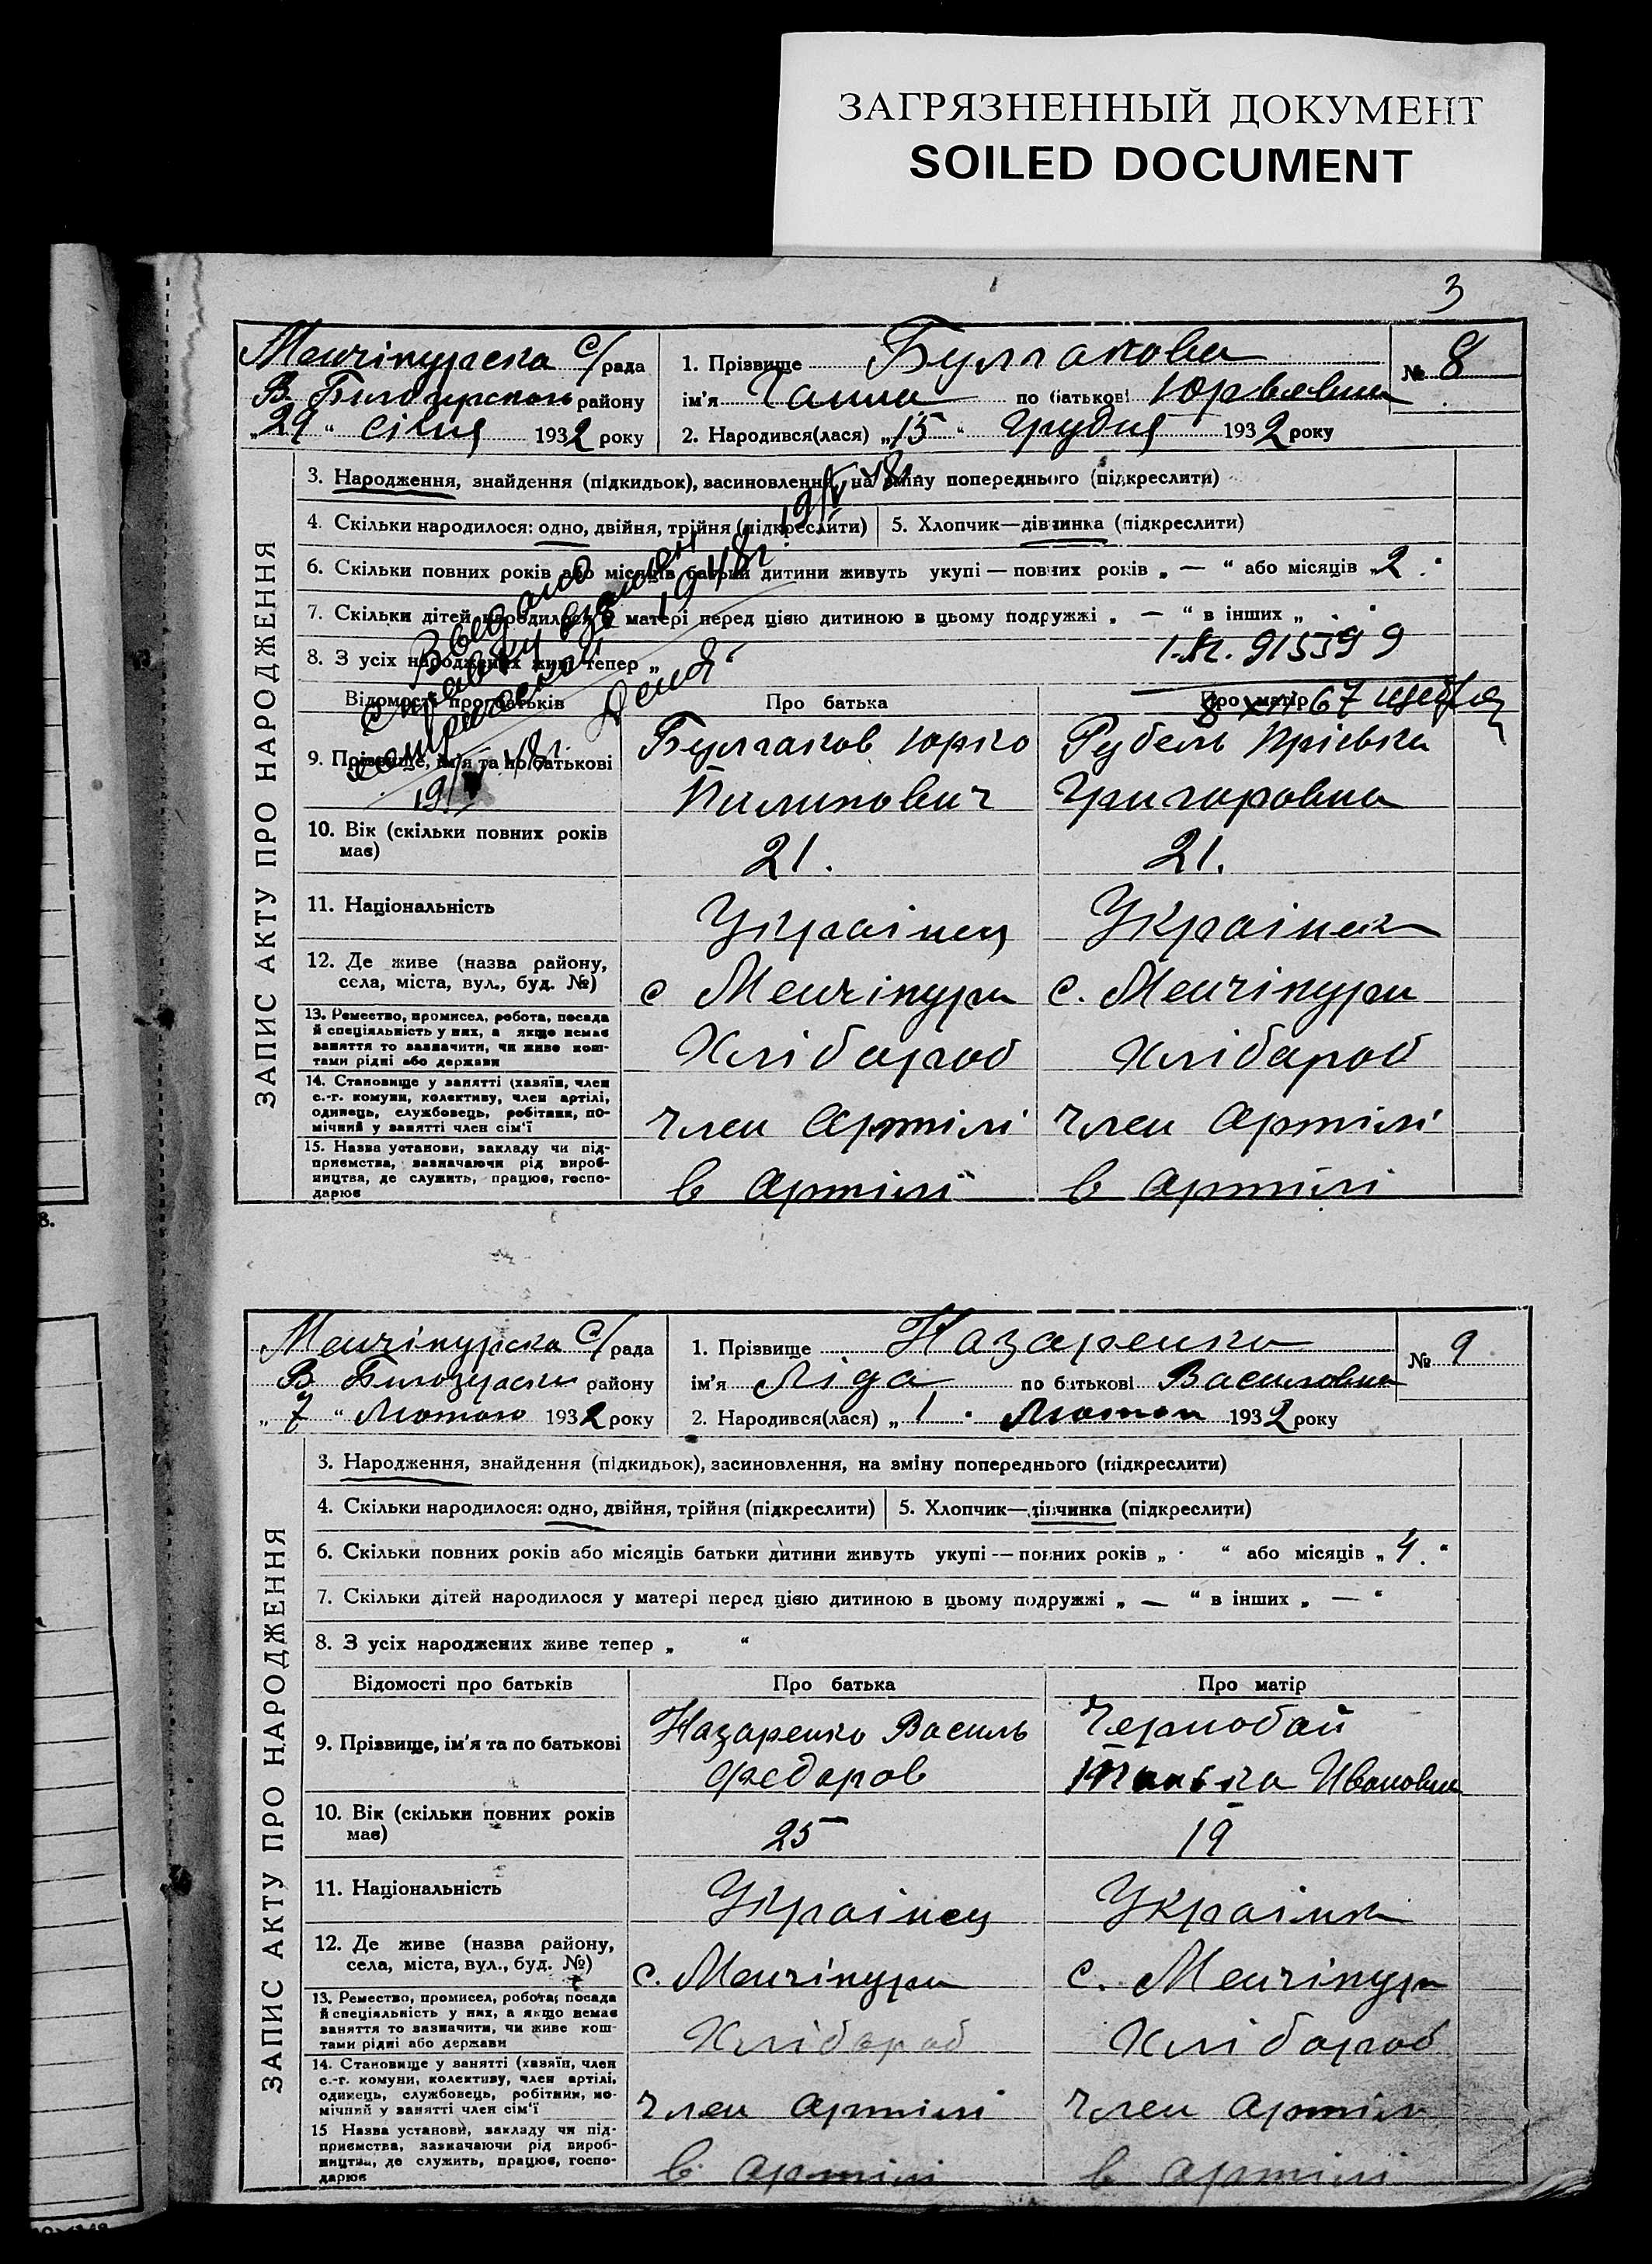 ЗАГРЯЗНЕННЫЙ ДОКУМЕНТ
SOILED DOCUMENT
3
Менчікурска с/рада
В. Білозерского району
„29“ січня 1932 року
1. Прізвище Булгакова
ім'я Ганна по батькові Юрьевна
№ 8
2. Народився(лася) „15“ Грудня 1932 року
ЗАПИС АКТУ ПРО НАРОДЖЕННЯ
3. Народження, знайдення (підкидьок), засиновлення, на зміну попереднього (підкреслити)
4. Скільки народилося: одно, двійня, трійня (підкреслити) 5. Хлопчик—дівчинка (підкреслити)
6. Скільки повних років або місяців батьки дитини живуть укупі — повних років „ — “ або місяців „2.“
7. Скільки дітей народилося у матері перед цією дитиною в цьому подружжі „ — “ в інших „ . “
8. З усіх народжених живе тепер „ “
Выдано
справку взамен
19/V 48г.
1948г.
915399
8 XII 67
Відомості про батьків Про батька Про матір
9. Прізвище, ім'я та по батькові
Булгаков Юрко
Пилипович
Рубель Пріська
Григоровна
10. Вік (скільки повних років має)
21. 21.
11. Національність Українец Українка
12. Де живе (назва району,
села, міста, вул., буд. №)
с Менчікури с. Менчікури
13. Ремество, промисел, робота, посада
й спеціяльність у них, а якщо немає
заняття то зазначити, чи живе кош-
тами рідні або держави
Хлібароб Хлібароб
14. Становище у занятті (хазяїн, член
с.-г. комуни, колективу, член артілі,
одинець, службовець, робітник, по-
мічний у занятті член сім'ї
член артілі член артілі
15. Назва установи, закладу чи під-
приємства, зазначаючи рід вироб-
ництва, де служить, працює, госпо-
дарює
в артілі в артілі
Менчікурска с/рада
В Білозерски району
„7“ Лютого 1932 року
1. Прізвище Назаренко
ім'я Ліда по батькові Василовна
№ 9
2. Народився(лася) „1“ Лютого 1932 року
ЗАПИС АКТУ ПРО НАРОДЖЕННЯ
3. Народження, знайдення (підкидьок), засиновлення, на зміну попереднього (підкреслити)
4. Скільки народилося: одно, двійня, трійня (підкреслити) 5. Хлопчик—дівчинка (підкреслити)
6. Скільки повних років або місяців батьки дитини живуть укупі — повних років „ · “ або місяців „4.“
7. Скільки дітей народилося у матері перед цією дитиною в цьому подружжі „ — “ в інших „ — “
8. З усіх народжених живе тепер „ “
Відомості про батьків Про батька Про матір
9. Прізвище, ім'я та по батькові
Назаренко Василь
Федаров
Чернобай
Ивановна
10. Вік (скільки повних років має)
25 19
11. Національність Українец Українка
12. Де живе (назва району,
села, міста, вул., буд. №)
с. Менчікури с. Менчікури
13. Ремество, промисел, робота, посада
й спеціяльність у них, а якщо немає
заняття то зазначити, чи живе кош-
тами рідні або держави
Хлібароб Хлібароб
14. Становище у занятті (хазяїн, член
с.-г. комуни, колективу, член артілі,
одинець, службовець, робітник, по-
мічний у занятті член сім'ї
член артілі член артілі
15 Назва установи, закладу чи під-
приємства, зазначаючи рід вироб-
ництва, де служить, працює, госпо-
дарює
в артілі в артілі